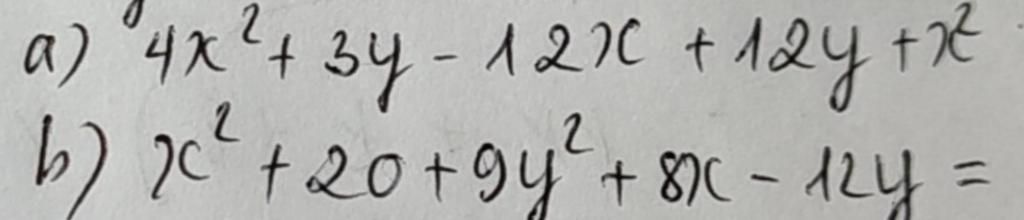 a) 4x² + 3y - 12x + 12y + x²
b) x² + 20 + 9y² + 8x - 12y =